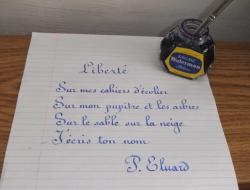 Liberté
Sur mes cahiers d'écolier
Sur mon pupitre et les arbres
Sur le sable sur la neige
J'écris ton nom
P. Eluard
Waterman